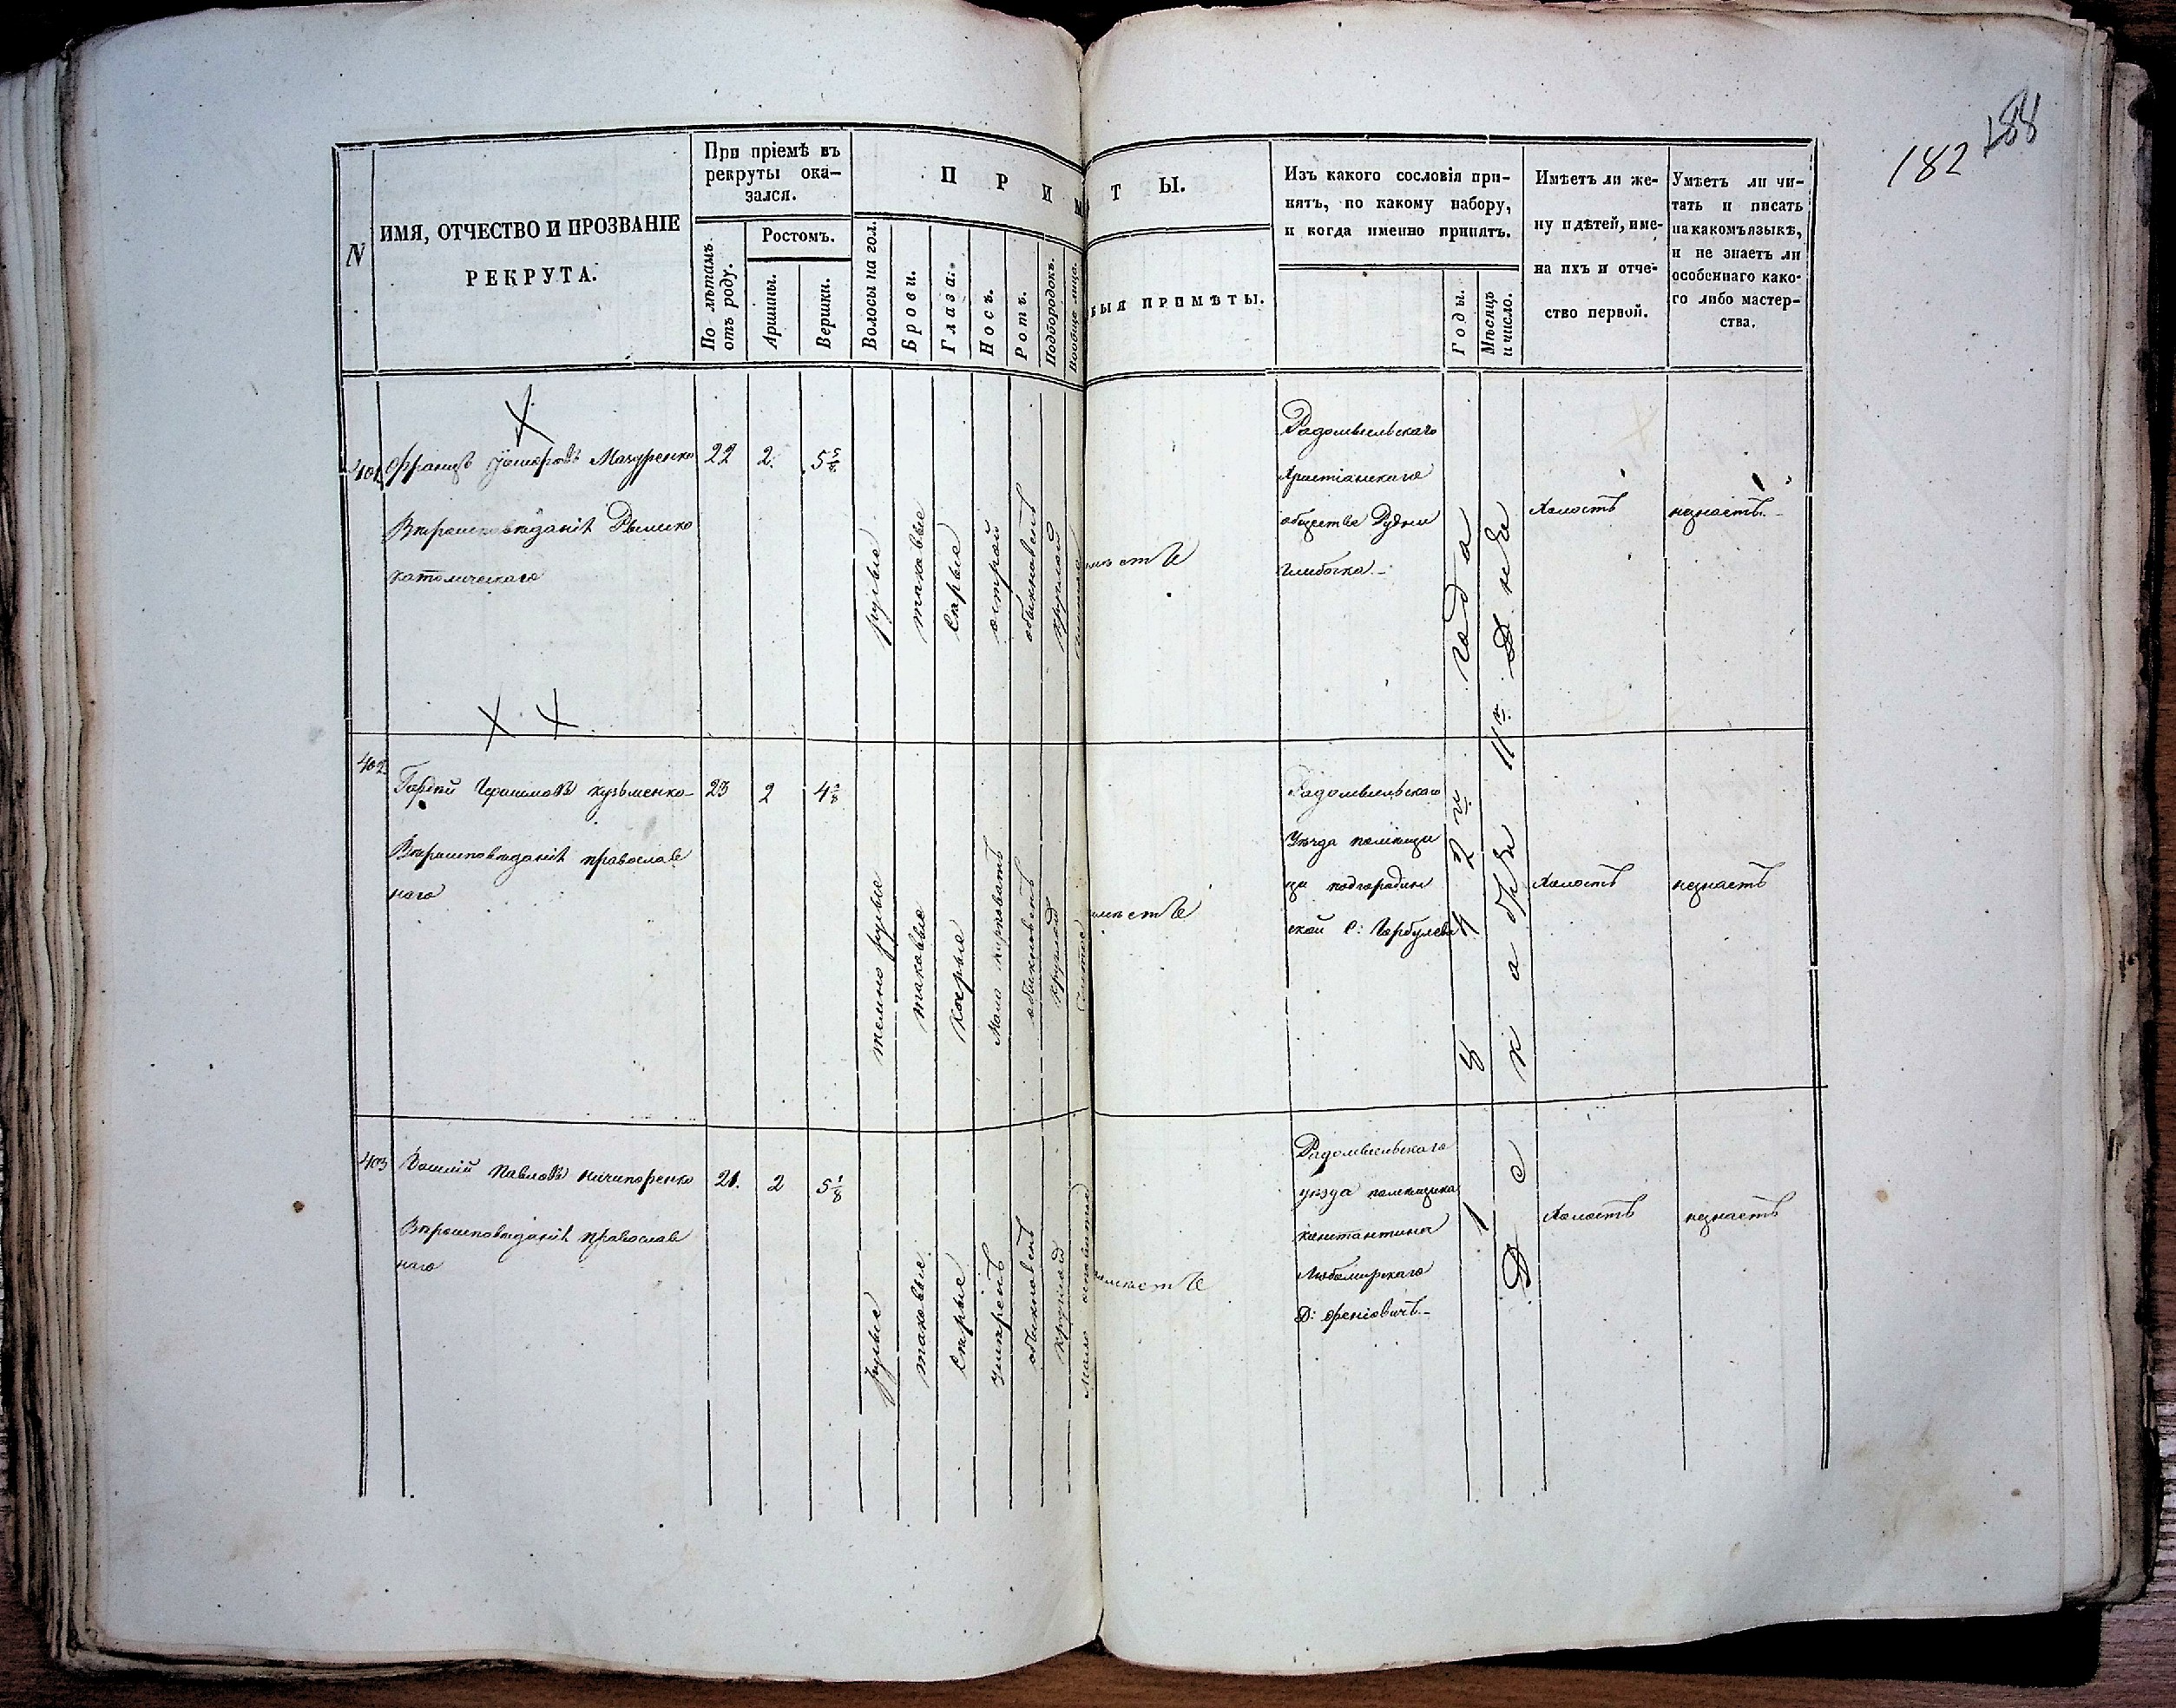 182
188
N
ИМЯ, ОТЧЕСТВО И ПРОЗВАНІЕ
РЕКРУТА.
При пріемѣ въ
рекруты ока-
зался.
По лѣтамъ
отъ роду.
Ростомъ.
Аршины.
Вершки.
П Р И М
Т Ы.
Волосы на гол.
Брови.
Глаза.
Носъ.
Ротъ.
Подбородокъ.
Вообще лица.
ЫЯ ПРИМѢТЫ.
Изъ какого сословія при-
нятъ, по какому набору,
и когда именно принятъ.
Годы.
Мѣсяцъ
и число.
Имѣетъ ли же-
ну и дѣтей, име-
на ихъ и отче-
ство первой.
Умѣетъ ли чи-
тать и писать
на какомъ языкѣ,
и не знаетъ ли
особеннаго како-
го либо мастер-
ства.
401
Францъ Мазуренко
22
2.
5 5/8
Вѣроисповѣданія Римско
католическаго
русые
таковые
сѣрые
острой
обыкновенъ
круглой
Радомысльскаго
Христіанскаго
общества Рудни
Холостъ
незнаетъ.
402
Гордѣй Герасимовъ Кузьменко
23
2
4
Вѣроисповѣданія православ
наго
темно русые
таковые
карые
Мало
обыкновенъ
круглой
Чистое
Радомысльскаго
Уѣзда помѣщи
ской с: Горбулева
Холостъ
незнаетъ
403
Василій Павловъ Ничипоренко
21.
2
5 1/8
Вѣроисповѣданія православ
наго
русые
таковые
сѣрые
умѣренъ
обыкновенъ
круглой
Мало
Радомысльскаго
уѣзда помѣщика
Константина
Любомирскаго
Холостъ
незнаетъ
года
Декабря 11го Дня